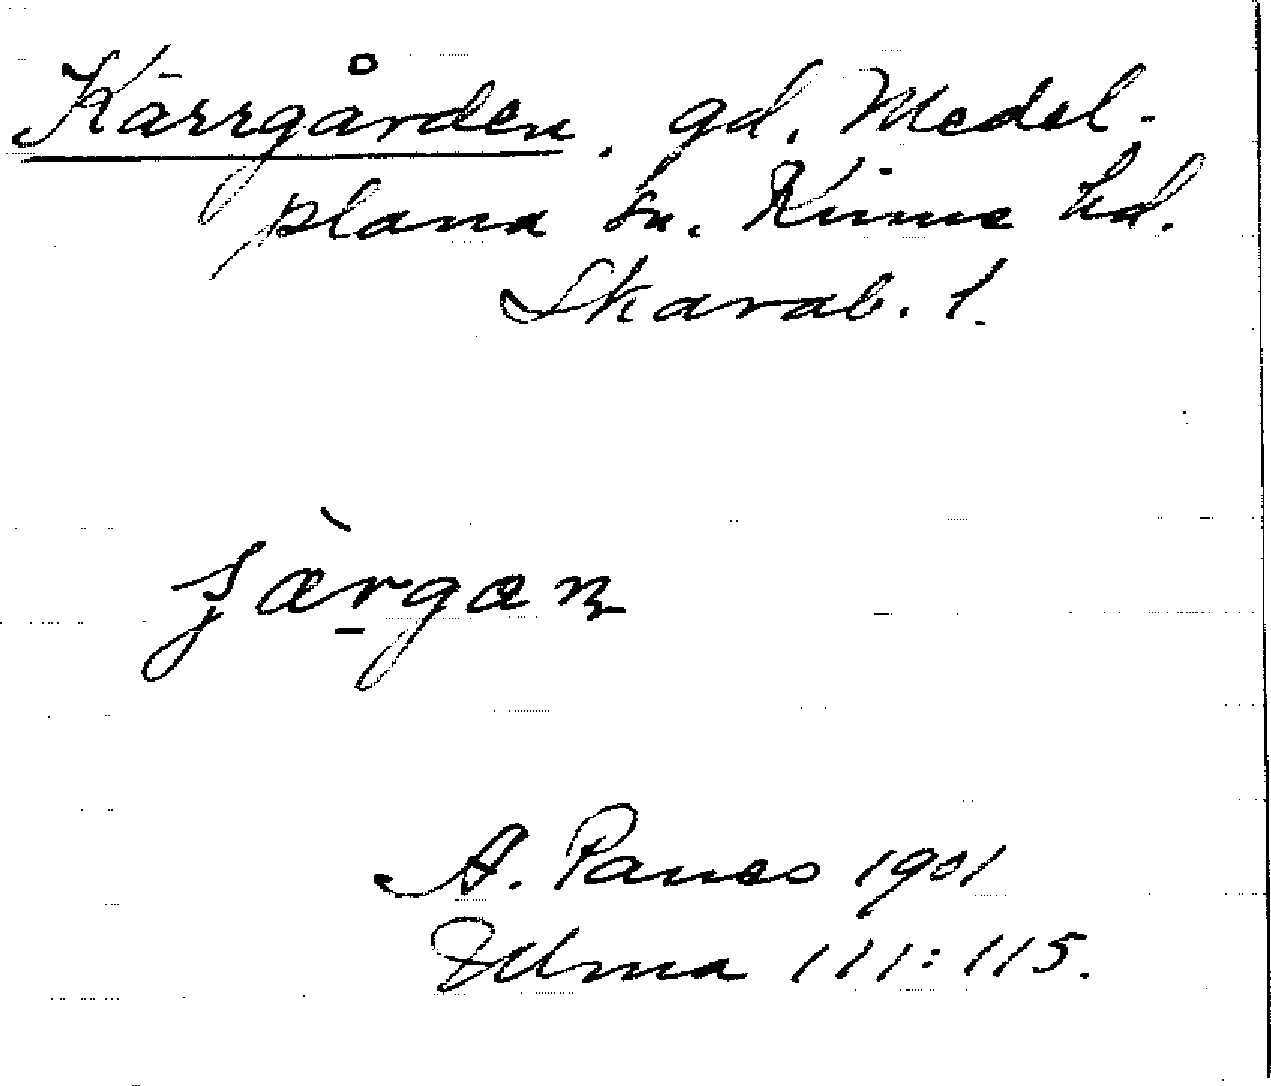 Kärrgården. gd. Medel-
plana sn. Kinne hd.
Skarab. l.
A. Paues 1901
111:115.